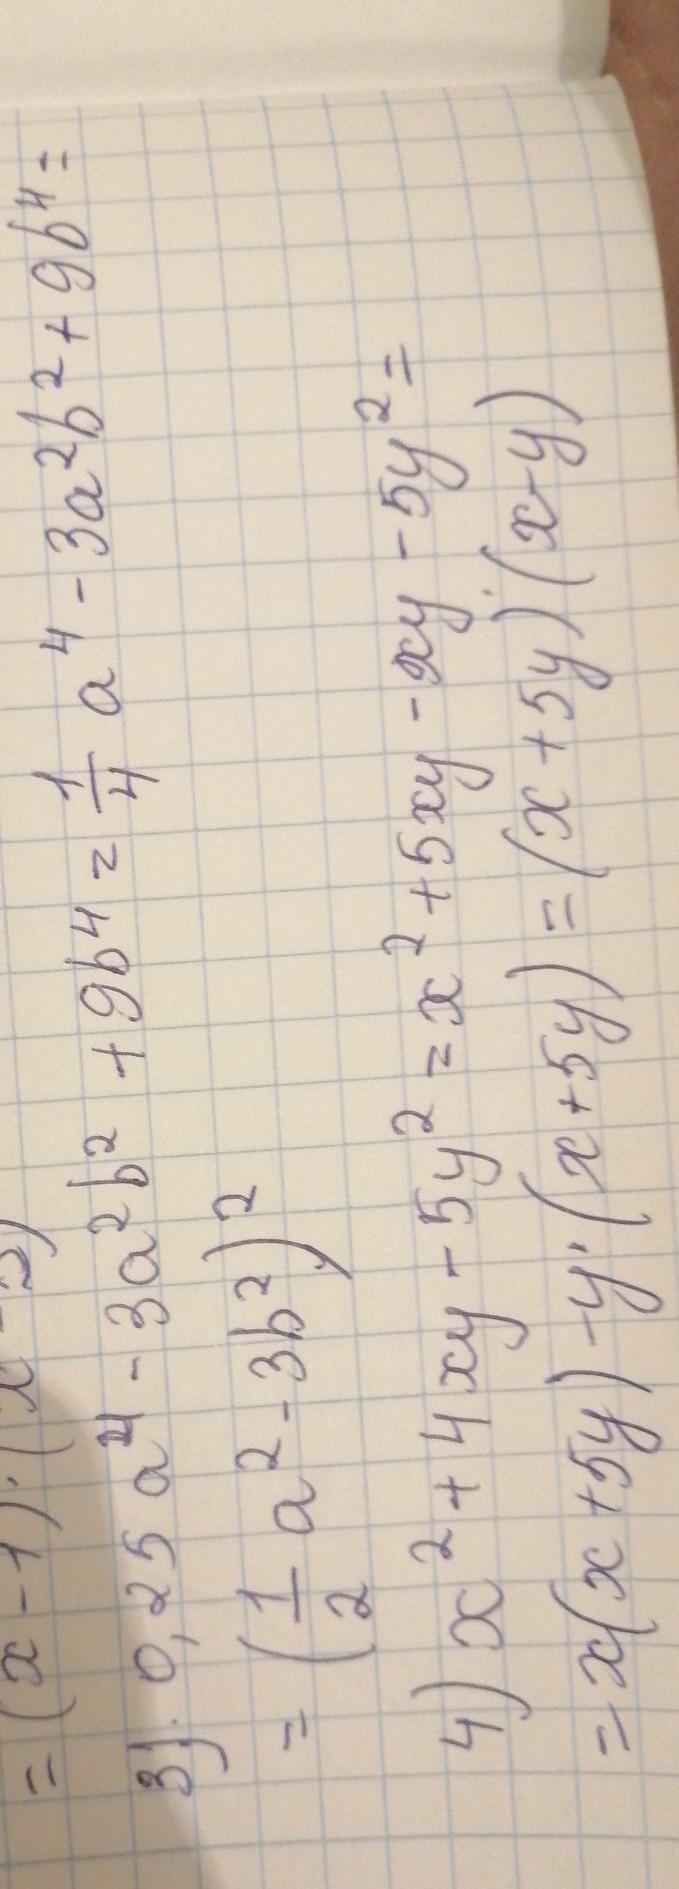 = (x - 1) · (x - 5)
3). 0,25 a⁴ - 3a²b² + 9b⁴ = 1/4 a⁴ - 3a²b² + 9b⁴ =
= (1/2 a² - 3b²)²
4) x² + 4xy - 5y² = x² + 5xy - xy - 5y² =
= x(x + 5y) - y·(x + 5y) = (x + 5y)·(x - y)